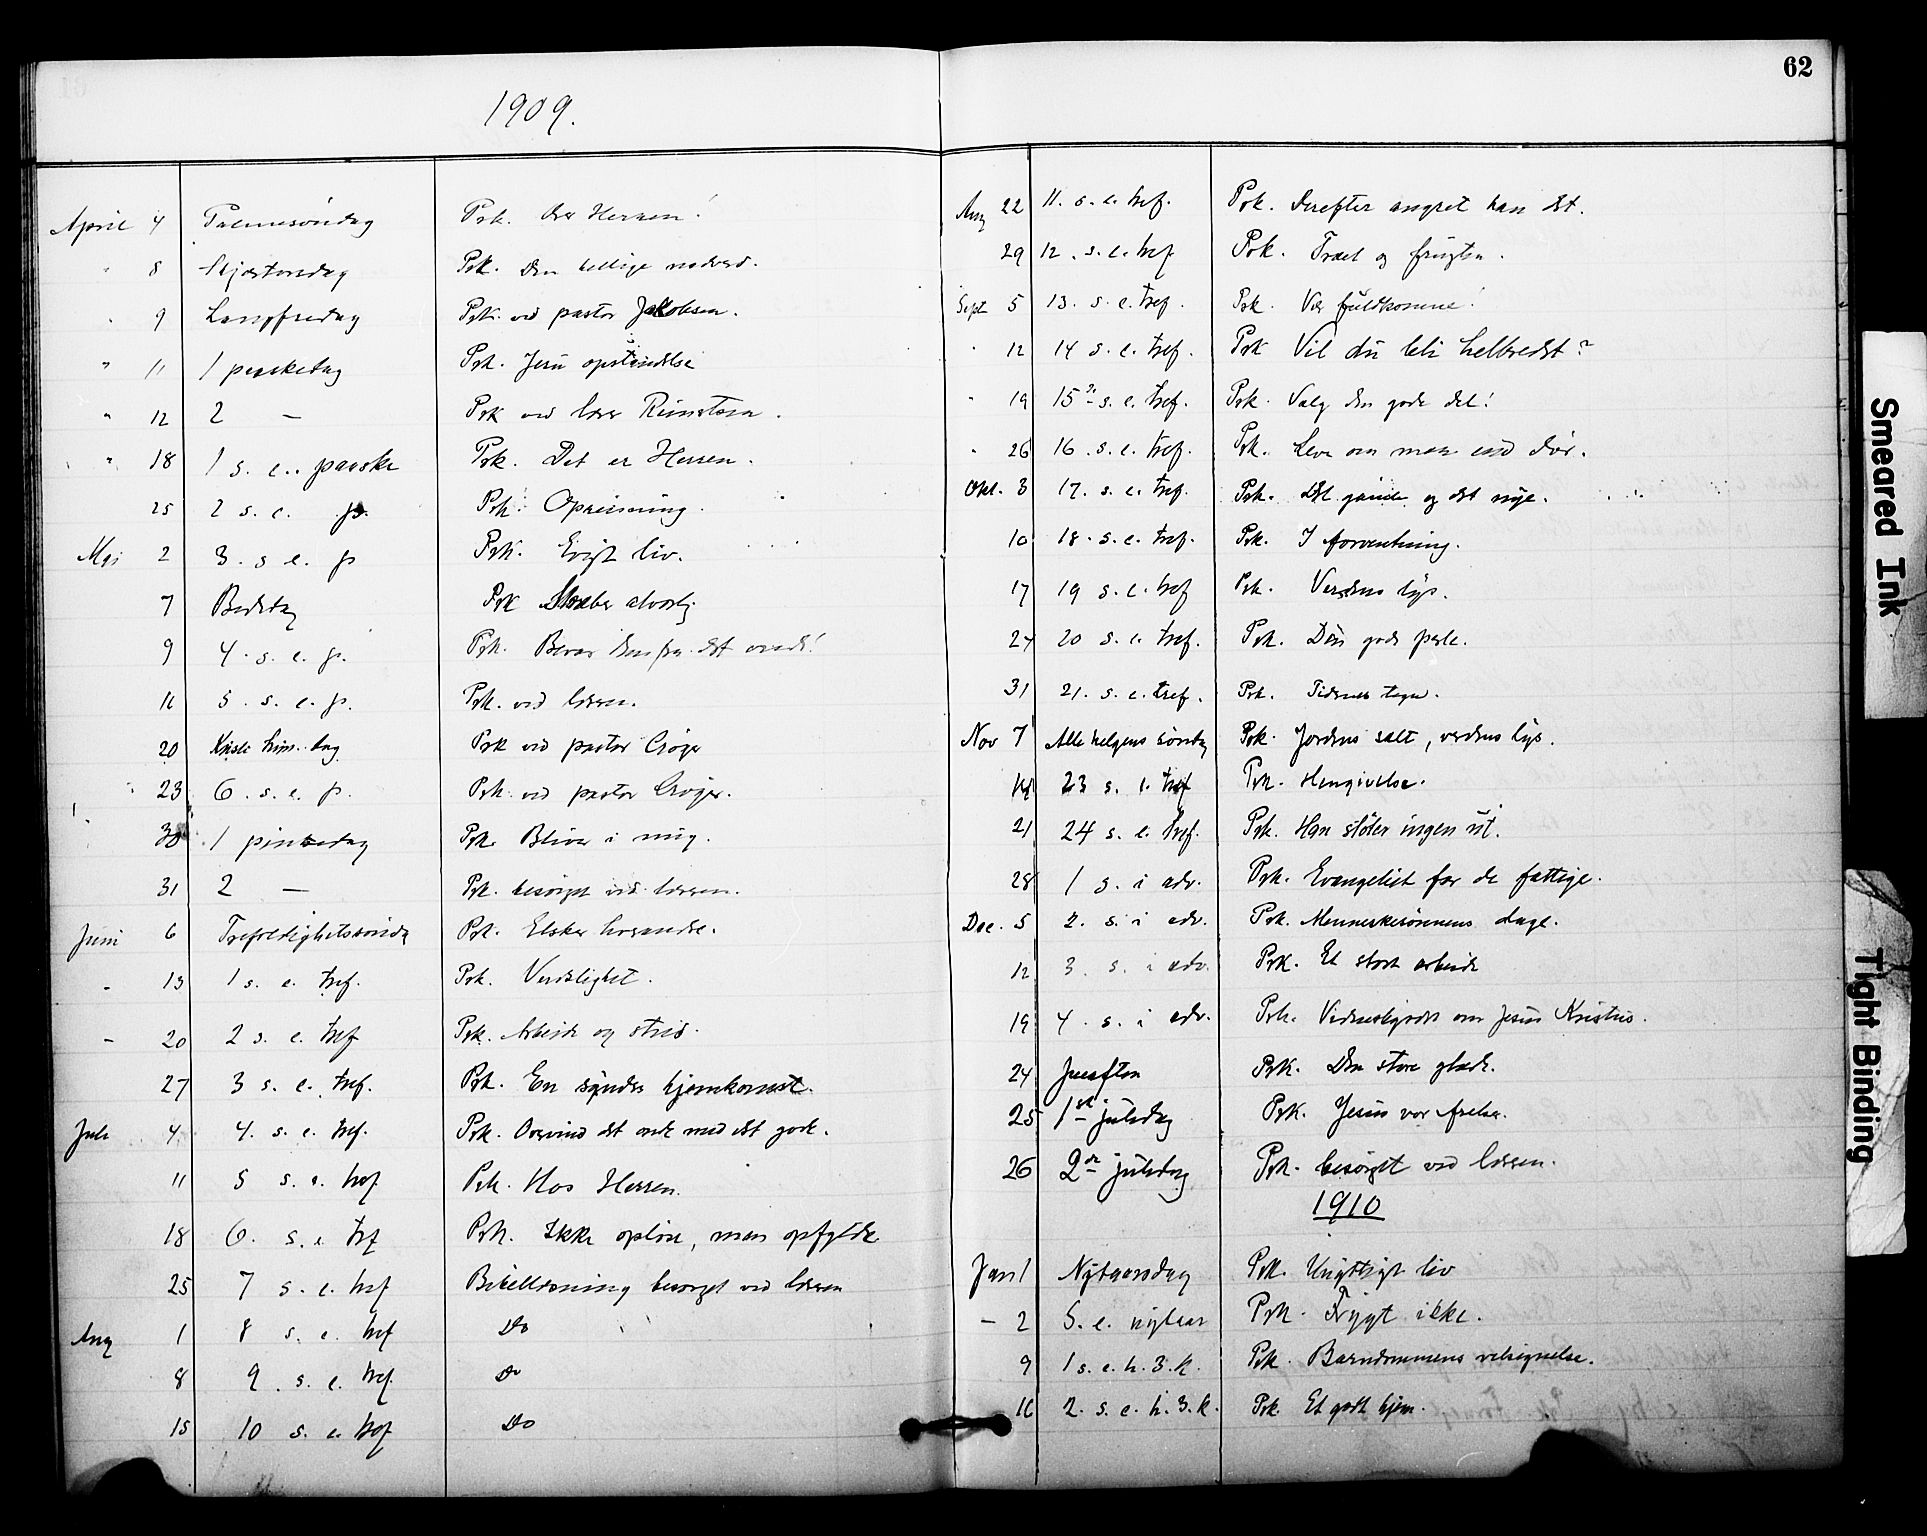 62
1909.
April 4 Palmesöndag Prk. Der Herren!
" 8 Skjærtorsdag Prk. Den hellige nadverd.
" 9 Langfredag Prk. ved pastor Jakobsen.
" 11 1 paaskedag Prk. Jesu opstandelse
" 12 2 — Prk ved lærer
" 18 1 s. e. paaske Prk. Det er Herren.
25 2 s. e. p. Prk. Opreisning.
Mai 2 3. s e. p Prk. Evigt liv.
7 Bedsdag Prk Stræber alvorlig
9 4. s. e. p. Prk. Bevar dem fra det onde!
16 5. s. e. p. Prk. ved læreren.
20 Kristi him. dag Prk ved pastor Crøger
23 6. s. e. p. Prk. ved pastor Crøger.
30 1 pinsedag Prk. Bliver i mig.
31 2 — Prk. besörget ved læreren.
Juni 6 Trefoldighetssönda Prk. Elsker hverandre.
" 13 1 s. e. tref. Prk. Verdslighet.
– 20 2 s. e. tref Prk. Arbeide og strid.
27 3 s. e. tref. Prk. En synders hjemkomst.
Juli 4 4. s. e. tref. Prk. Overvind det onde med det gode.
11 5 s. e. tref Prk. Hos Herren.
18 6. s. e tref Prk. Ikke opløse, men opfylde
25 7 s. e. tref Bibellæsning besorget ved læreren
Aug 1 8 s. e. tref Do
8 9. s. e. tref Do
15 10 s. e. tref Do
Aug 22 11. s. e. tref. Prk. Derefter angret han det.
29 12. s. e. tref Prk. Træet og frugten.
Sept 5 13. s. e. tref. Prk. Vær fuldkomne!
" 12 14 s. e. tref. Prk Vil du bli helbredet?
" 19 15de s. e. tref. Prk. Valg den gode del!
" 26 16. s. e. tref. Prk. Leve om man end dör.
Okt. 3 17. s. e. tref. Prk. Det gamle og det nye.
10 18. s. e. tref. Prk. I forventning.
17 19 s. e. tref Prk. Verdens lys.
24 20 s. e. tref. Prk. Den gode perle.
31 21. s. e. tref. Prk. Tidernes tegn.
Nov 7 Alle helgens söndag Prk. Jordens salt, verdens lys.
14 23 s. e. tref Prk. Hengivelse.
21 24 s. e. tref. Prk. Han støter ingen ut.
28 1 s. i adv. Prk. Evangeliet for de fattige.
Dec. 5 2. s. i adv. Prk. Menneskesönnens dage.
12 3. s. i adv. Prk. Et stort arbeide
19 4. s. i adv. Prk. Vidnesbyrdet om Jesus Kristus.
24 Juleaften Prk. Den store glæde.
25 1ste juledag Prk. Jesus vor frelser.
26 2den juledag Prk. besörget ved læreren.
1910
Jan 1 Nytaarsdag Prk. Unyttigt liv
– 2 S. e. nytaar Prk. Frygt ikke.
9 1 s. e. h. 3. k. Prk. Barndommens velsignelse.
16 2. s. e. h. 3. k. Prk. Et godt hjem.
Smeared Ink
Tight Binding